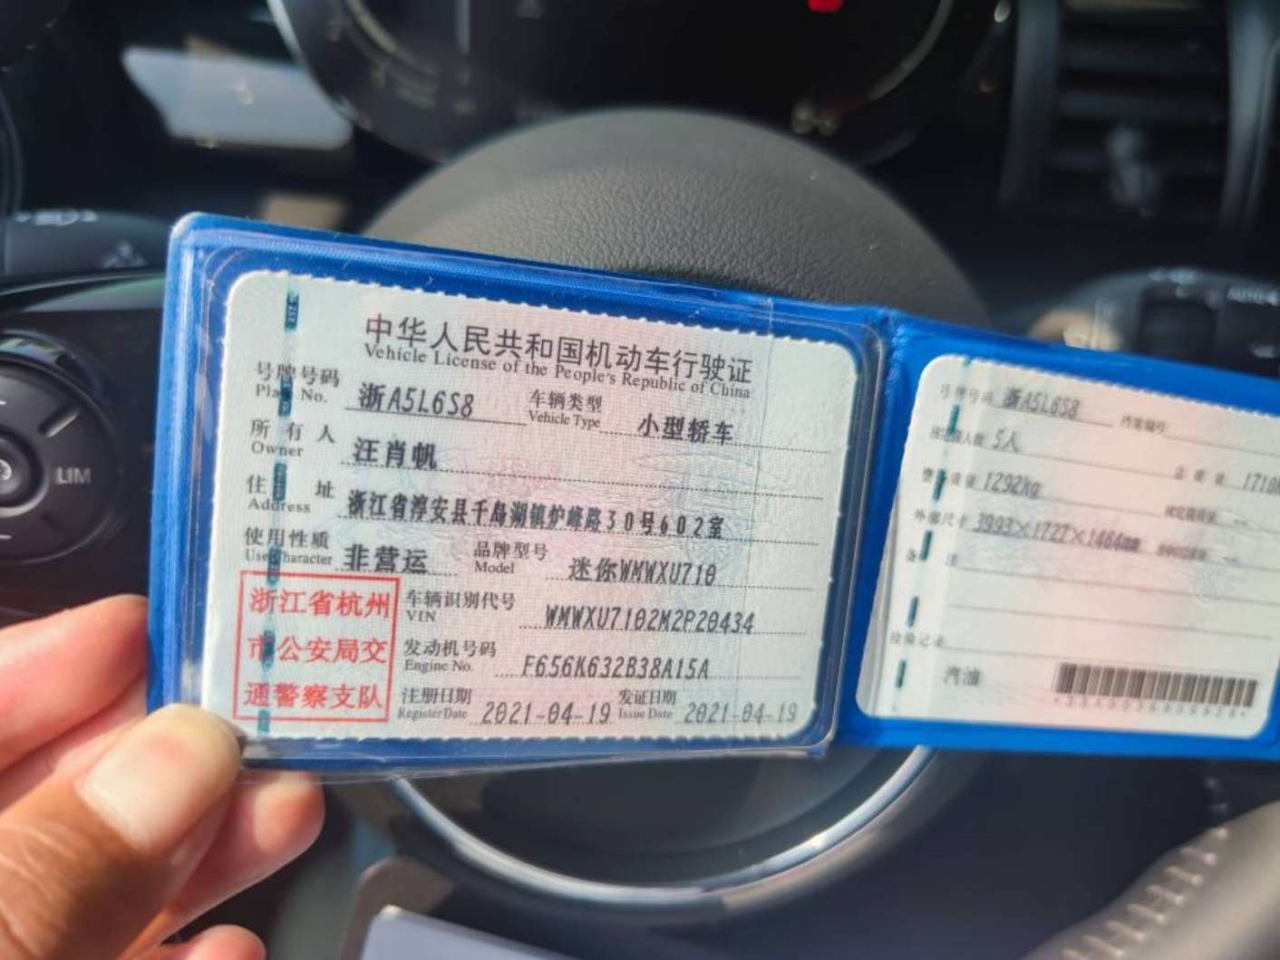 中华人民共和国机动车行驶证
Vehicle License of the People's Republic of China
号牌号码 浙A5L6S8 车辆类型 小型轿车
Plate No. Vehicle Type
所有人 汪肖帆
Owner
住址 浙江省淳安县千岛湖镇炉峰路30号602室
Address
使用性质 非营运 品牌型号 迷你WMWXU710
Use Character Model
浙江省杭州
市公安局交
通警察支队
车辆识别代号 WMWXU7102M2P20434
VIN
发动机号码 F656K632B38A15A
Engine No.
注册日期 2021-04-19 发证日期 2021-04-19
Register Date Issue Date
号牌号码 浙A5L6S8 档案编号
5人
1292kg
外廓尺寸 3993×1727×1464mm
备注
检验记录
汽油
LIM
AUTO